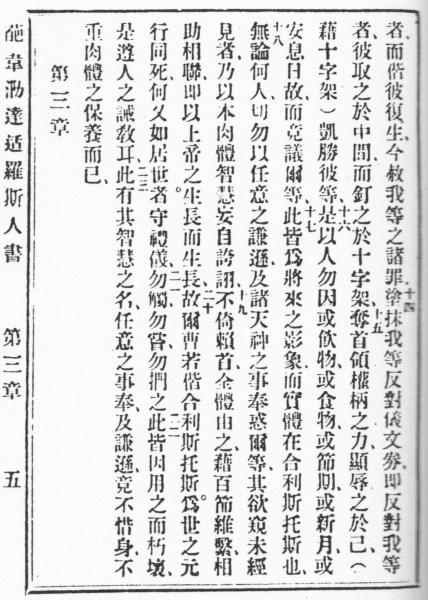 者而偕彼復生今赦我等之諸罪十四塗抹我等反對儀文券即反對我等
者彼取之於中間而釘之於十字架十五奪首領權柄之力顯辱之於己（
藉十字架）凱勝彼等十六是以人勿因或飲物或食物或節期或新月或
安息日故而竟議爾等十七此皆爲將來之影象而實體在合利斯托斯也、
十八無論何人切勿以任意之謙遜及諸天神之事奉惑爾等、其欲窺未經
見者乃以本肉體智慧妄自誇詡十九不倚賴首全體由之藉百節維繫相
助相聯即以上帝之生長而生長。二十故爾曹若偕合利斯托斯爲世之元
行同死何又如居世者守禮儀二一勿觸勿嘗勿捫之二二此皆因用之而朽壞、
是遵人之誡教耳二三此有其智慧之名、任意之事奉及謙遜、竟不惜身不
重肉體之保養而已、
第三章
葩韋泐達适羅斯人書 第三章 五